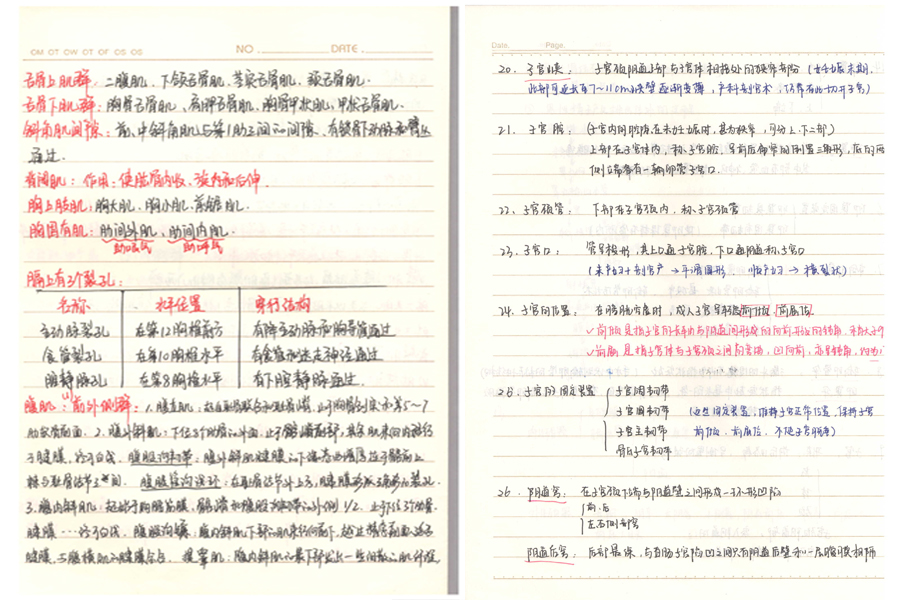 OM OT OW OT OF OS OS NO. DATE.
舌骨上肌群：二腹肌、下颌舌骨肌、茎突舌骨肌、颏舌骨肌.
舌骨下肌群：胸骨舌骨肌、肩胛舌骨肌、胸骨甲状肌、甲状舌骨肌.
斜角肌间隙：前、中斜角肌与第1肋之间的间隙、有锁骨下动脉和臂丛
通过.
背阔肌：作用：使肱骨内收、旋内和后伸.
胸上肢肌：胸大肌、胸小肌、前锯肌.
胸固有肌：肋间外肌、肋间内肌.
助吸气 助呼气
膈上有3个裂孔：
名称 水平位置 穿行结构
主动脉裂孔 在第12胸椎前方 有降主动脉和胸导管通过
食管裂孔 在第10胸椎水平 有食管和迷走神经通过
腔静脉孔 在第8胸椎水平 有下腔静脉通过.
腹肌：(1)前外侧群：1.腹直肌：起自耻骨联合和耻骨嵴，止于胸骨剑突和第5~7
肋软骨前面. 2.腹外斜肌：下位8个肋骨的外面，止于髂嵴前部，
于腱膜，终于白线. 腹股沟韧带：腹外斜肌腱膜的下缘
棘与耻骨结节之间. 腹股沟管浅环：在耻骨结节外上方，腱膜形成三角形的裂孔.
3.腹内斜肌：起始于胸腰筋膜、髂嵴和腹股沟韧带的外侧1/2，
腱膜…终于白线. 腹股沟镰：腹内斜肌下部的
腱膜，与腹横肌的腱膜会合. 提睾肌：腹内斜肌的最下部发出一些细散的肌纤维，
Date. Page.
20. 子宫峡：子宫颈阴道上部与子宫体相接处的狭窄部份（女子妊娠末期，
此部可延长至7~11cm峡壁逐渐变薄，产科剖宫术，可在此切开子宫）
21. 子宫腔：（子宫内的腔隙，在未妊娠时，甚为狭窄，可分上.下二部）
上部在子宫体内，称子宫腔，呈前后略扁的倒置三角形，底的两
侧端各有一输卵管子宫口.
22. 子宫颈管：下部在子宫颈内，称子宫颈管
23. 子宫口：管呈梭形，其上口通子宫腔，下口通阴道称子宫口
（未产妇+剖宫产 → 平滑圆形， 顺产妇 → 横裂状）
24. 子宫的位置：在膀胱空虚时，成人子宫呈轻度前倾、前屈位
✓前倾是指子宫的长轴与阴道间形成的向前开放的钝角，
✓前屈是指子宫体与子宫颈之间的弯曲，凹向前，亦呈钝角，
25. 子宫的固定装置 子宫阔韧带
子宫圆韧带（这些固定装置，维持子宫正常位置，保持子宫
子宫主韧带 前倾、前屈位、不使子宫脱垂）
骶子宫韧带
26. 阴道穹：在子宫颈下端与阴道壁之间形成一环形凹陷
前.后
左右侧部穹
阴道后穹：后部最深，与直肠子宫陷凹之间只有阴道后壁和一层腹膜相隔